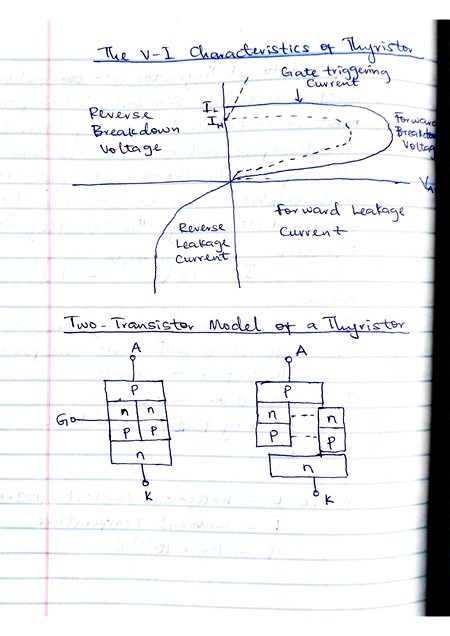 The V-I Characteristics of Thyristor
Gate triggering
Current
Reverse
Breakdown
Voltage
IL
IH
Forward
Breakdown
Voltage
Forward Leakage
Current
Reverse
Leakage
Current
Two-Transistor Model of a Thyristor
A
P
n n
G
P P
n
K
A
P
n n
P P
n
K